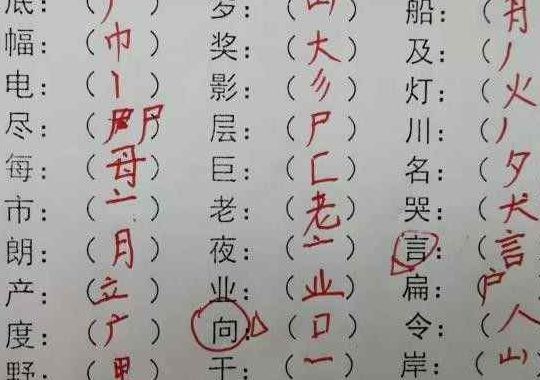 底：（广 岁：（山） 船：（月
幅：（巾） 奖：（大） 及：（丿
电：（丨） 影：（彡） 灯：（火
尽：（尸） 层：（尸） 川：（丿
每：（母） 巨：（匚） 名：（夕
市：（亠） 老：（老） 哭：（犬
朗：（月） 夜：（亠） 言：（言
产：（立） 业：（业） 扁：（户
度：（广） 向：（口） 令：（人
野：（里 干：（一 岸：（山）